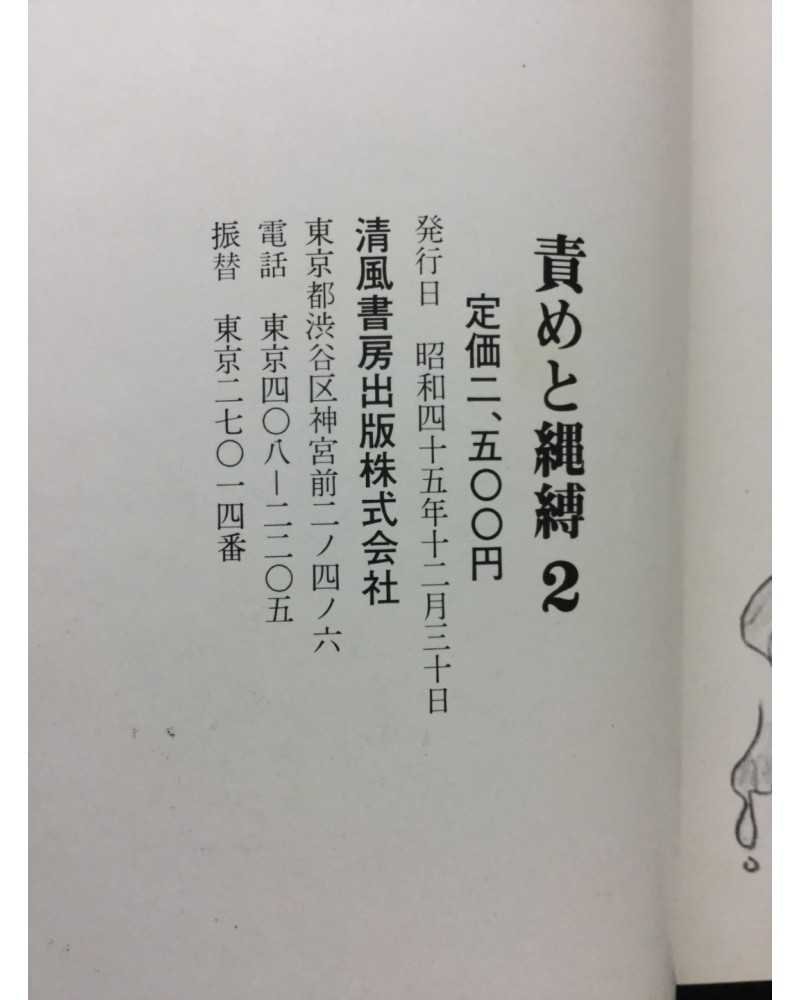 責めと縄縛 2
定価二、五〇〇円
発行日 昭和四十五年十二月三十日
清風書房出版株式会社
東京都渋谷区神宮前二ノ四ノ六
電話 東京四〇八―二二〇五
振替 東京二七〇一四番